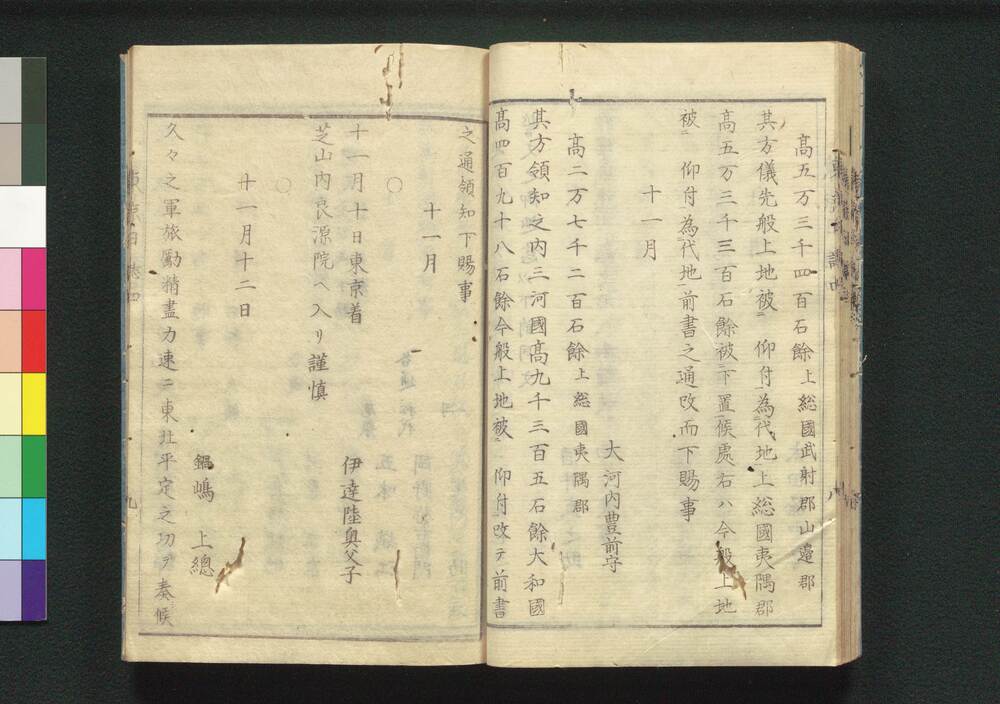 高五万三千四百石餘上総國武射郡山邉郡
其方儀先般上地被 仰付為代地上総國夷隅郡
高五万三千三百石餘被下置候處右ハ今般上地
被 仰付為代地前書之通改而下賜事
十一月
大河内豊前守
高二万七千二百石餘上総國夷隅郡
其方領知之内三河國高九千三百五石餘大和國
高四百九十八石餘今般上地被 仰付改テ前書
之通領知下賜事
十一月
○
十一月十日東京着
伊達陸奥父子
芝山内良源院ヘ入リ謹慎
○
十一月十二日
鍋嶋 上總
久々之軍旅勵精盡力速ニ東北平定之功ヲ奏候
東京日誌四
九